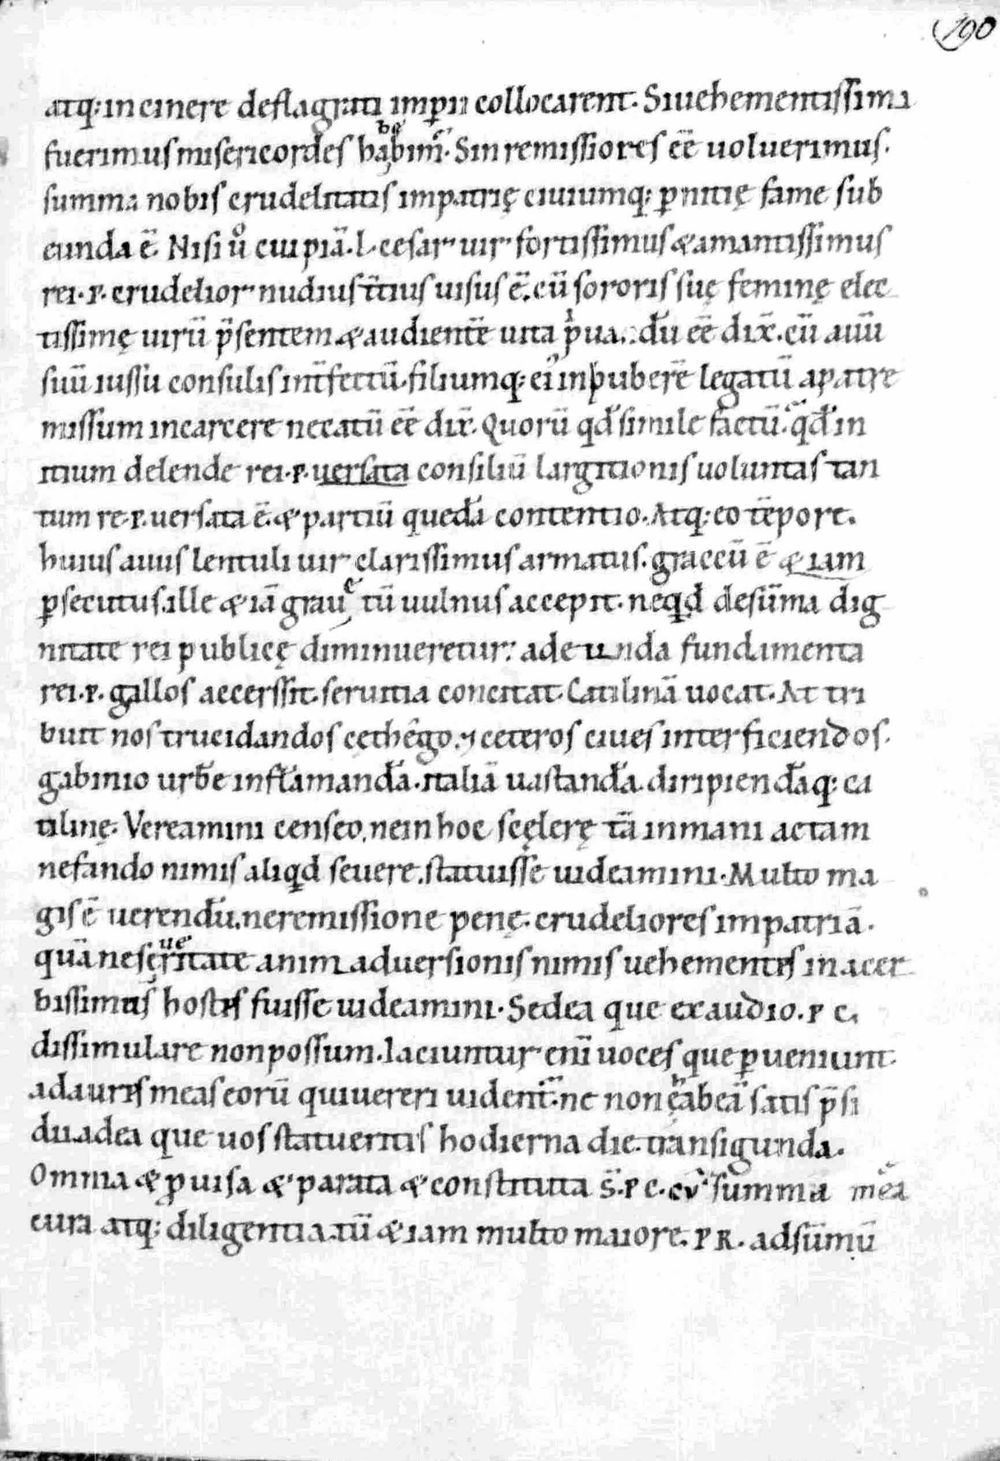 190
atq; in cinere deflagrati imꝑii collocarent. Si uehementissima
fuerimus misericordes habebimr̃. Sin remissiores eē uoluerimus.
summa nobis crudelitatis impatrię ciuiumq; ꝑnitię fame sub
eunda ē. Nisi ů cuipiā. L. cesar uir fortissimus & amantissimus
rei. p. crudelior nudius t̃tius uisus ē. cū sororis suę feminę elec
tissimę uirū p̃sentem & audientē uita p̃ua dū eē dix̃. cū auū
suū iussu consulis int̃fectū. filiumq; ei inpuberē legatū apatre
missum incarcere necatū eē dix̃. Quorū qd̃ simile factū. qd̃ in
itium delende rei. p. uersata consiliū largitionis uoluntas tan
tum re. p. uersata ē. & partiū quedā contentio. Atq; eo tēpore.
huius auus lentuli uir clarissimus armatus. graccū ē & iam
ꝑsecutus. ille & iā graue tū uulnus accepit. neqd̃ desūma dig
nitate rei publicę diminueretur. ade unda fundamenta
rei. p. gallos accerssit. seruitia concitat. Catilinā uocat. At tri
buit nos trucidandos cęthēgo. & ceteros ciues interficiendos.
gabinio urbē inflāmandā. italiā uastandā. diripiendāq; ca
tilinę. Vereamini censeo, nein hoc scęlerę tā inmani actam
nefando nimis aliqd̃ seuere. statuisse uideamini. Multo ma
gis ē uerendū. neremissione penę. crudeliores impatriā.
quā ne seueritate animaduersionis nimis uehementes in acer
bissimus hostes fuisse uideamini. Sedea que exaudio. p c.
dissimulare nonpossum. Iaciuntur enī uoces que ꝑueniunt.
adaures meas eorū quiuereri uident̃. ne non hęabeā satis p̃si
du. adea que uos statueritis hodierna die. transigunda.
Omnia & ꝓuisa & parata & constituta s̄. p c. cū summa meā
cura atq; diligentia. tū & iam multo maiore. P R. adsūmū